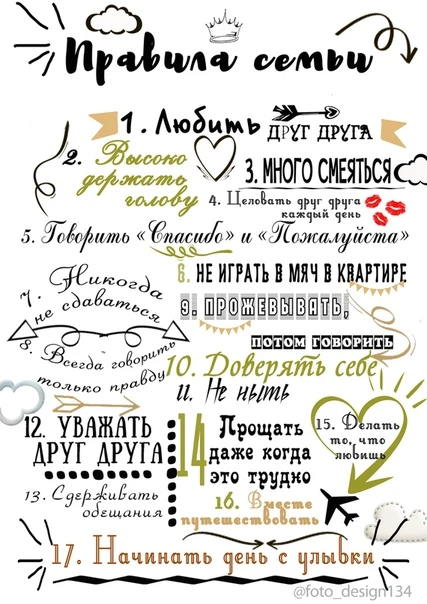 Правила семьи
1. Любить друг друга
2. Высоко
держать
голову
3. МНОГО СМЕЯТЬСЯ
4. Целовать друг друга
каждый день
5. Говорить «Спасибо» и «Пожалуйста»
6. НЕ ИГРАТЬ В МЯЧ В КВАРТИРЕ
7. Никогда
не сдаваться
8. Всегда говорить
только правду
9. ПРОЖЕВЫВАТЬ,
ПОТОМ ГОВОРИТЬ
10. Доверять себе
11. Не ныть
12. УВАЖАТЬ
ДРУГ ДРУГА
13. Сдерживать
обещания
14 Прощать
даже когда
это трудно
15. Делать
то, что
любишь
16. Вместе
путешествовать
17. Начинать день с улыбки
@foto_design134